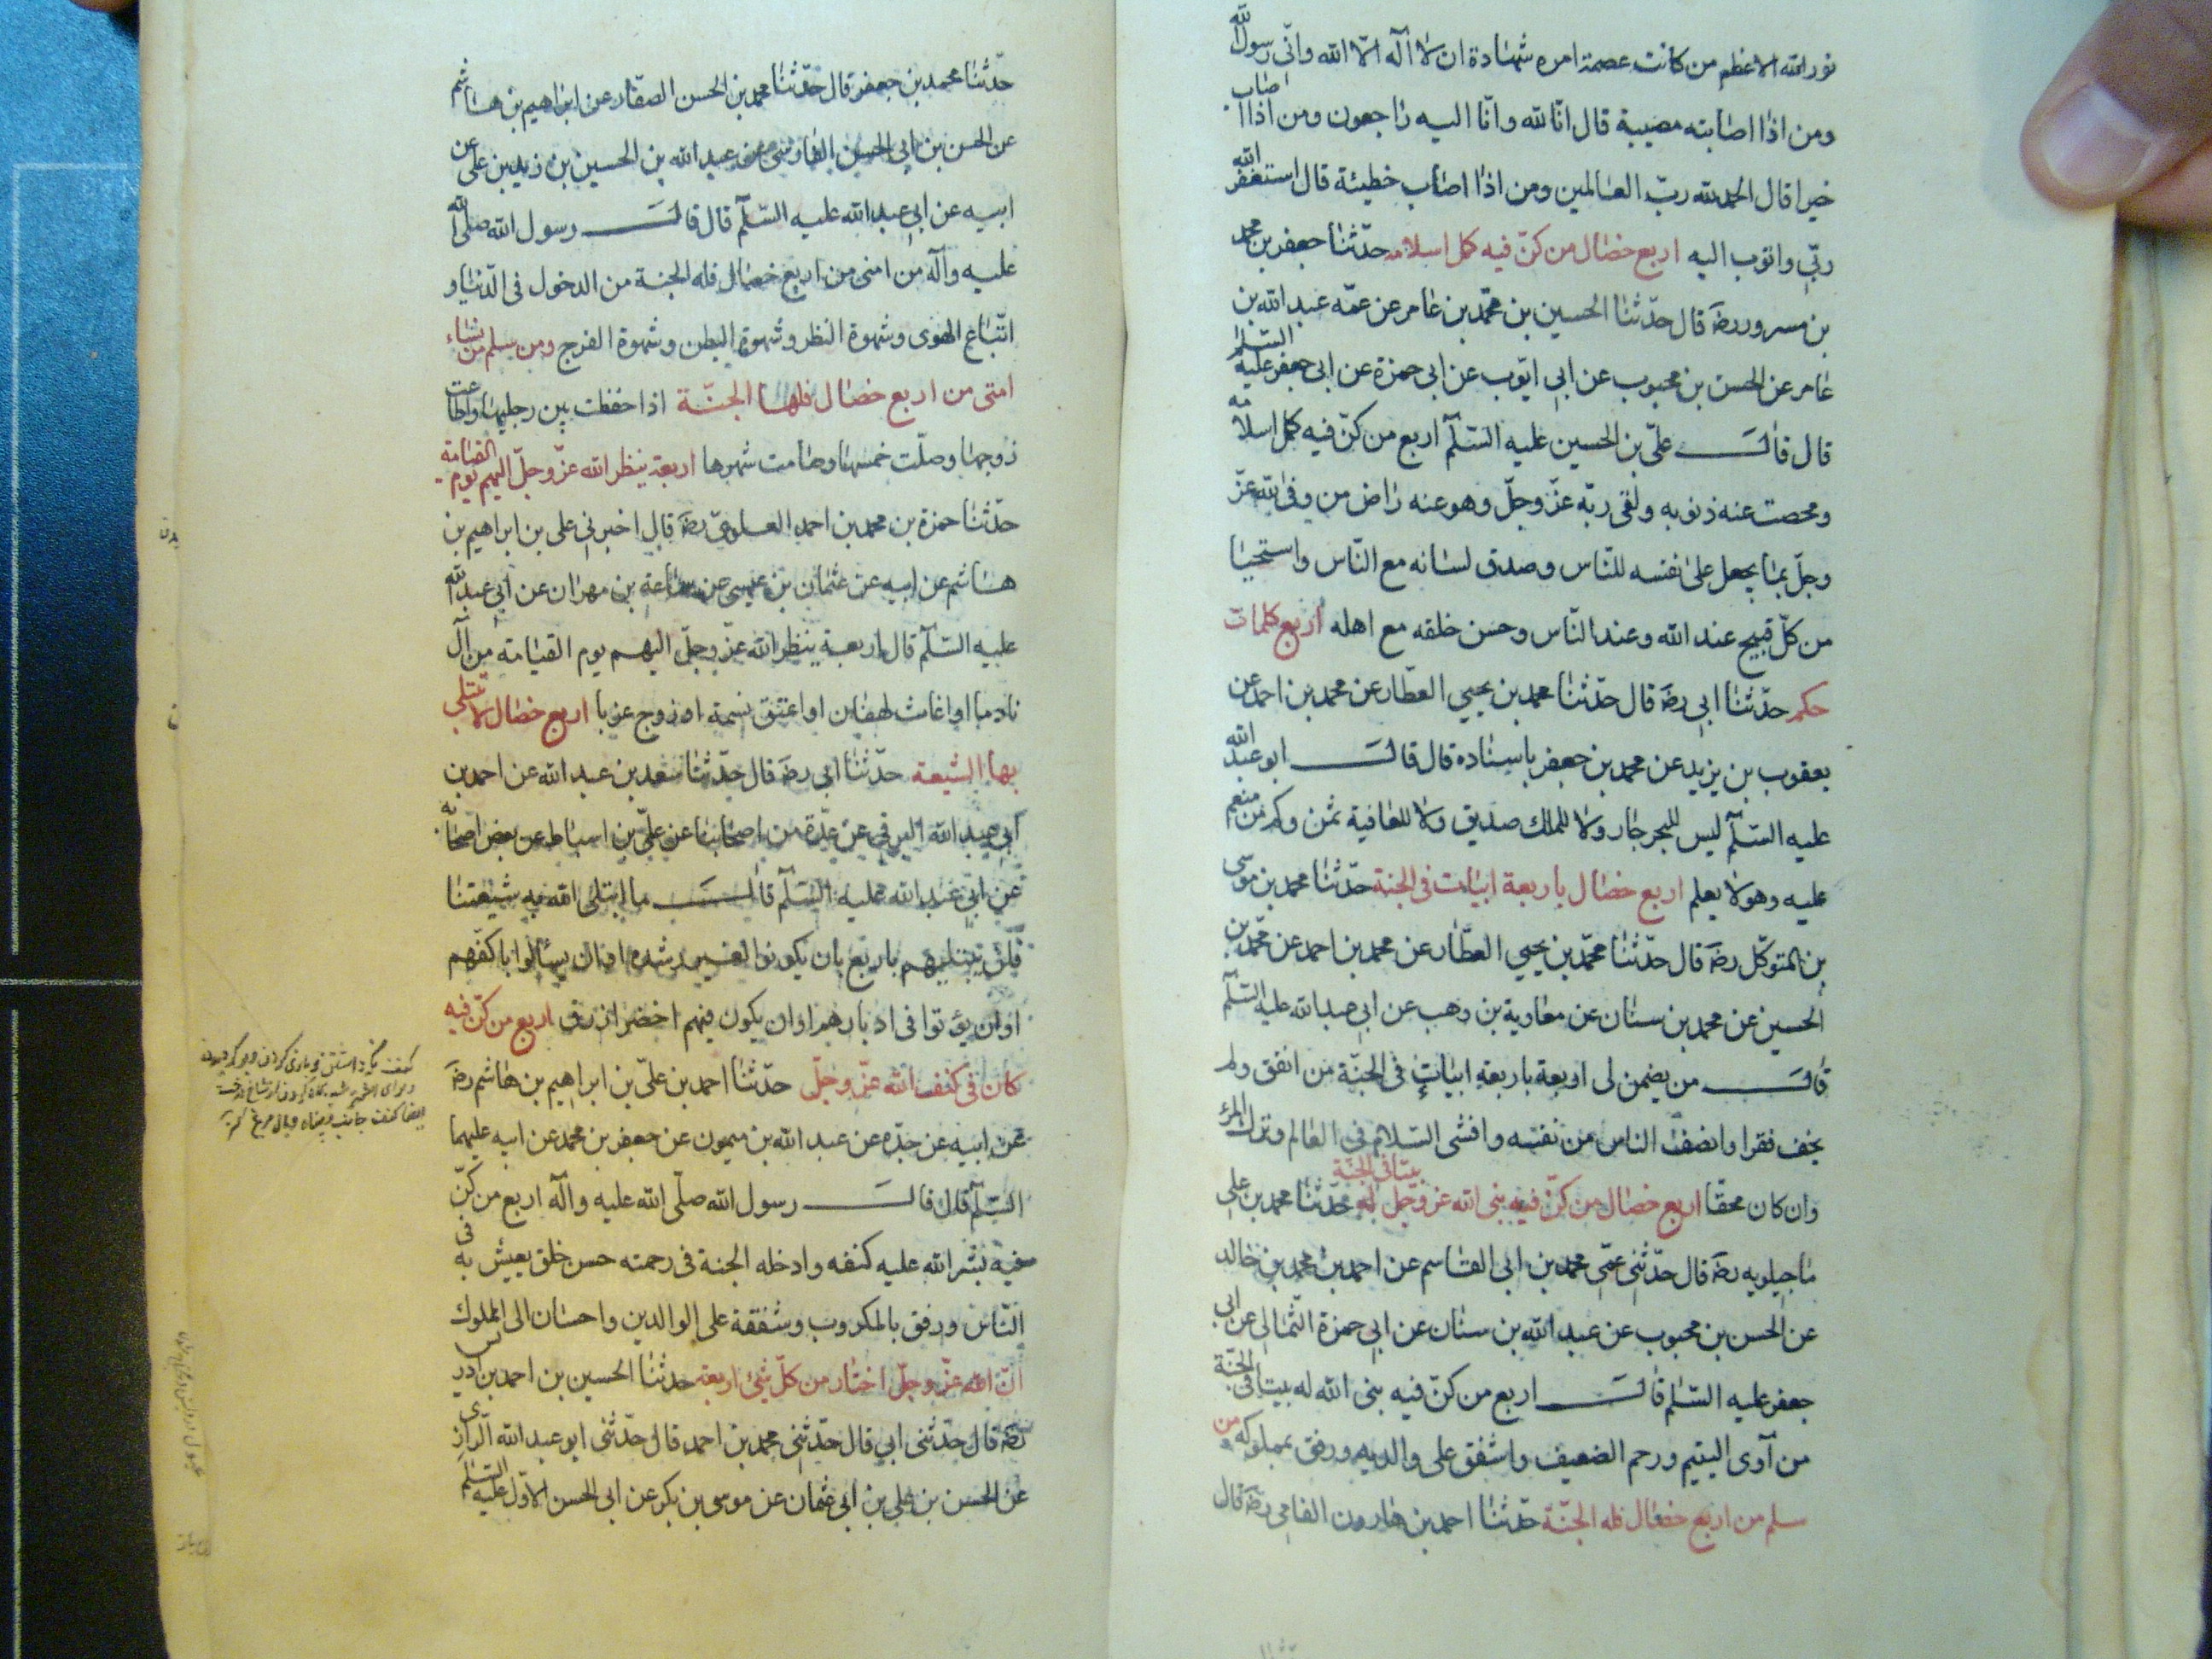 نور الله الاعظم من كانت عصمة امره شهادة ان لا اله الا الله وانّي رسول الله
ومن اذا اصابته مصيبة قال انّا لله وانّا اليه راجعون ومن اذا اصاب
خيرا قال الحمد لله ربّ العالمين ومن اذا اصاب خطيئة قال استغفر الله
ربّي واتوب اليه اربع خصال من كنّ فيه كمل اسلامه حدّثنا جعفر بن محمد
بن مسرور رضه قال حدّثنا الحسين بن محمّد بن عامر عن عمّه عبد الله بن
عامر عن الحسن بن محبوب عن ابي ايّوب عن ابي حمزة عن ابي جعفر عليه السلام
قال قال علىّ بن الحسين عليه السّلم اربع من كنّ فيه كمل اسلامه
ومحصت عنه ذنوبه ولقى ربّه عزّ وجلّ وهو عنه راض من وفى لله عزّ
وجلّ بما يجعل على نفسه للنّاس وصدق لسانه مع النّاس واستحيا
من كلّ قبيح عند الله وعند النّاس وحسن خلقه مع اهله اربع كلمات
حكم حدّثنا ابي رضه قال حدّثنا محمد بن يحيي العطّار عن محمد بن احمد عن
يعقوب بن يزيد عن محمد بن جعفر باسناده قال قال ابو عبد الله
عليه السّلم ليس للبحر جار ولا للملك صديق ولا للعافية ثمن وكم من منعم
عليه وهو لا يعلم اربع خصال باربعة ابيات في الجنة حدّثنا محمد بن موسى
بن المتوكّل رضه قال حدّثنا محمّد بن يحيي العطّار عن محمد بن احمد عن محمّد بن
الحسين عن محمد بن سنان عن معاوية بن وهب عن ابي عبد الله عليه السّلم
قال من يضمن لى اربعة باربعة ابيات في الجنّة من انفق ولم
يخف فقرا وانصف الناس من نفسه وافشى السّلام في العالم وترك المراء
وان كان محقّا اربع خصال من كنّ فيه بنى الله عز وجل له بيتا في الجنّة حدّثنا محمد بن على
ماجيلويه رضه قال حدّثنى عمّى محمد بن ابى القاسم عن احمد بن محمد بن خالد
عن الحسن بن محبوب عن عبد الله بن سنان عن ابي حمزة الثّمالى عن ابي
جعفر عليه السّلم قال اربع من كنّ فيه بنى الله له بيتا في الجنّة
من آوى اليتيم ورحم الضعيف واشفق على والديه ورفق بمملوكه من
سلم من اربع خصال فله الجنّة حدّثنا احمد بن هارون الفامي رضه قال
حدّثنا محمد بن جعفر قال حدّثنا محمد بن الحسن الصفّار عن ابراهيم بن هاشم
عن الحسن بن ابي الحسين الفارسى عن عبد الله بن الحسين بن زيد بن على عن
ابيه عن ابي عبد الله عليه السّلم قال قال رسول الله صلى الله
عليه وآله من امتى من اربع خصال فله الجنة من الدخول في الدّنيا و
اتّباع الهوى وشهوة النظر وشهوة البطن وشهوة الفرج ومن سلم من نساء
امتى من اربع خصال فلها الجنّة اذا حفظت بين رجليها واطاعت
زوجها وصلّت خمسها وصامت شهرها اربعة ينظر الله عزّ وجلّ اليهم يوم القيامة
حدّثنا حمزة بن محمد بن احمد العلوىّ رضه قال اخبرنى على بن ابراهيم بن
هاشم عن ابيه عن عثمان بن عيسى عن سماعة بن مهران عن ابي عبد الله
عليه السّلم قال اربعة ينظر الله عزّ وجلّ اليهم يوم القيامة من اقال
نادما او اغاث لهفان او اعتق نسمة او زوج عزبا اربع خصال لا تبتلى
بها الشيعة حدّثنا ابي رضه قال حدّثنا سعد بن عبد الله عن احمد بن
ابي عبد الله البرقى عن عدّة من اصحابنا عن علىّ بن اسباط عن بعض اصحابه
عن ابي عبد الله عليه السّلم قال ما ابتلى الله به شيعتنا
فلن يبتليهم باربع بان يكونوا لغير رشدة او ان يسألوا باكفّهم
او ان يؤتوا في ادبارهم او ان يكون فيهم اخضر ازرق اربع من كنّ فيه
كان في كنف الله عزّ وجلّ حدّثنا احمد بن علىّ بن ابراهيم بن هاشم رضه
عن ابيه عن جدّه عن عبد الله بن ميمون عن جعفر بن محمد عن ابيه عليهما
السّلم قال قال رسول الله صلّى الله عليه وآله اربع من كنّ
فيه نشر الله عليه كنفه وادخله الجنة في رحمته حسن خلق يعيش به في
النّاس ورفق بالمكروب وشفقة على الوالدين واحسان الى المملوك
انّ الله عزّ وجلّ اختار من كلّ شئ اربعة حدثنا الحسين بن احمد بن ادريس
رضه قال حدّثنى ابي قال حدّثنى محمد بن احمد قال حدّثنى ابو عبد الله الرّازى
عن الحسن بن على بن ابي عثمان عن موسى بن بكر عن ابى الحسن الاوّل عليه السّلم